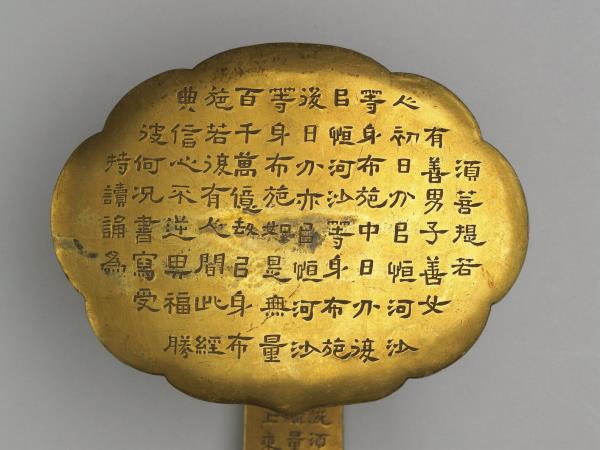 須菩提若
有善男子善女
人初日分以恒河沙
等身布施中日分復
以恒河沙等身布施
後日分亦以恒河沙
等身布施如是無量
百千萬億劫以身布
施若復有人聞此經
典信心不逆其福勝
彼何況書寫受
持讀誦為
須
量
上